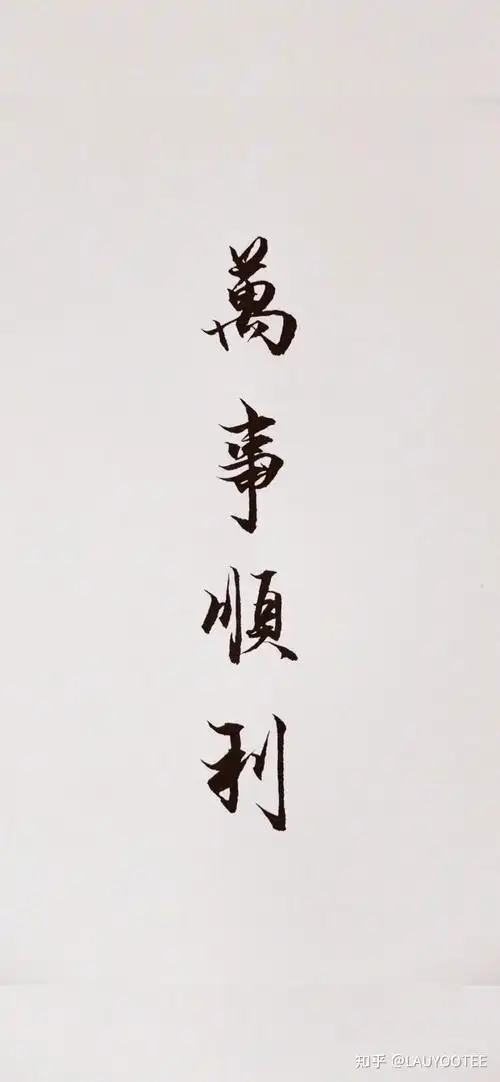 萬事順利
知乎 @LAUYOOTEE